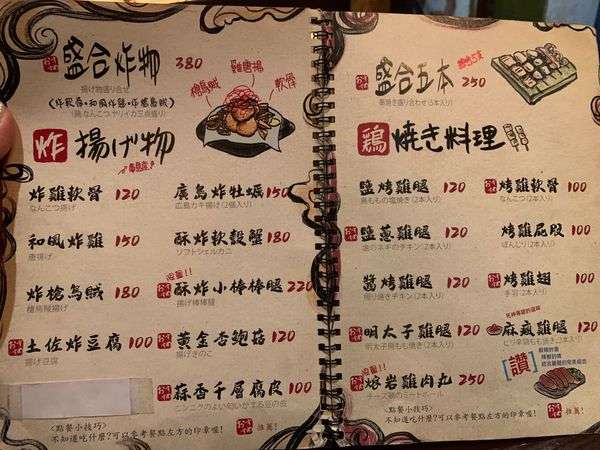 盛合炸物 380
揚げ物盛り合せ
(炸軟骨•和風炸雞•炸槍烏賊)
槍烏賊
雞唐揚
軟骨
炸 揚げ物
炸雞軟骨 120
なんこつ揚げ
和風炸雞 150
唐揚げ
炸槍烏賊 180
槍烏賊揚げ
土佐炸豆腐 100
揚げ豆腐
廣島炸牡蠣 150
広島カキ揚げ(2個入り)
酥炸軟殼蟹 180
ソフトシェルカニ
酥炸小棒棒腿 220
揚げ棒棒腿
黃金杏鮑菇 120
揚げきのこ
蒜香千層腐皮 100
<點餐小技巧>
不知道吃什麼?可以參考餐點左方的印章喔!
推薦!
盛合五本 250
串焼き盛り合わせ(5本入り)
鶏 焼き料理
鹽烤雞腿 120
鶏ももの塩焼き(2本入り)
鹽蔥雞腿 120
醬烤雞腿 120
照り焼きチキン(2本入り)
明太子雞腿 120
明太子鶏もも焼き(2本入り)
熔岩雞肉丸 250
チーズ鶏のミートボール
烤雞軟骨 100
なんこつ(2本入り)
烤雞屁股 100
ぼんじり(2本入り)
烤雞翅 100
手羽(2本入り)
麻瘋雞腿 120
[讚]
<點餐小技巧>
不知道吃什麼?可以參考餐點左方的印章喔!
推薦!